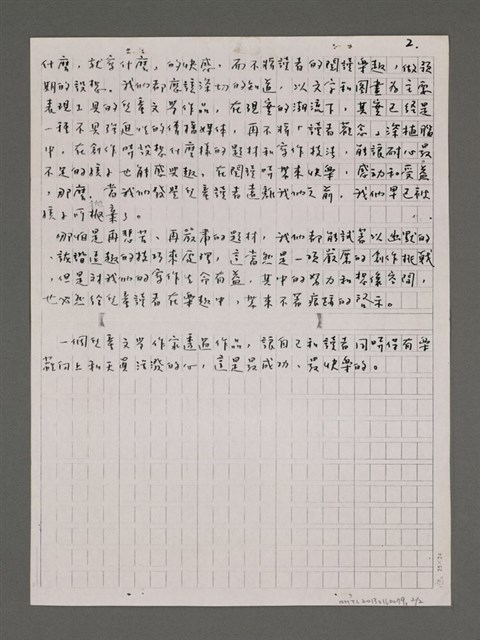 2.
什麼,就寫什麼,的快感,而不將讀者的閱讀樂趣,做預
期的設想。我們都應該深切的知道,以文字和圖畫為主要
表現工具的兒童文學作品,在現實的潮流下,其實已經是
一種不具強迫性的傳播媒體,再不將「讀者觀念」深植腦
中,在創作時設想什麼樣的題材和寫作技法,能讓耐心最
不足的孩子也能感興趣、在閱讀時帶來快樂,感動和受益
,那麼,當我們發覺兒童讀者遠離我們之前,我們早已被
孩子所摒棄了。
哪怕是再悲苦、再嚴肅的題材,我們都能試著以幽默的
、詼諧逗趣的技巧來處理,這當然是一項嚴厲的創作挑戰
,但是對我們的寫作生命有益,其中的努力和想像空間,
也必然給兒童讀者在樂趣中,帶來不著痕跡的啟示。
一個兒童文學作家透過作品,讓自己和讀者同時保有樂
觀向上和天真活潑的心,這是最成功、最快樂的。
24×25
2/2